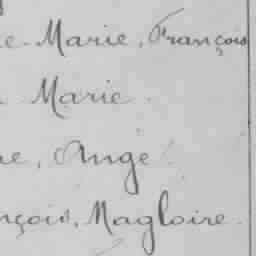 e-Marie, François
Marie
ne, Ange
nçois, Magloire